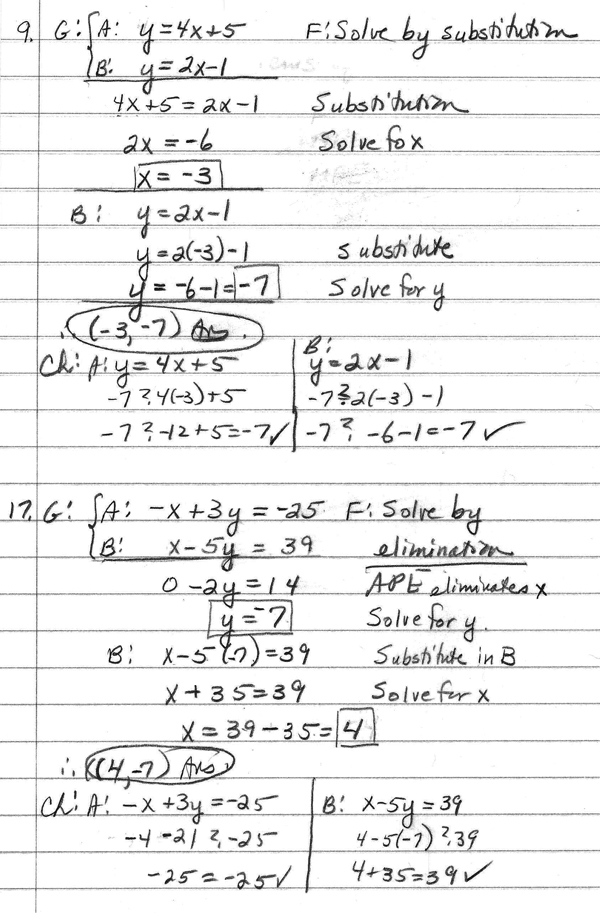 9. G: { A: y = 4x+5 F: Solve by substitution
B: y = 2x-1
4x+5 = 2x-1 Substitution
2x = -6 Solve fo x
x = -3
B: y = 2x-1
y = 2(-3)-1 substitute
y = -6-1 = -7 Solve for y
∴ (-3, -7) Ans.
Ch: A: y = 4x+5 B: y = 2x-1
-7 ? 4(-3)+5 -7 ? 2(-3)-1
-7 ? -12+5 = -7 ✓ -7 ? -6-1 = -7 ✓
17. G: { A: -x+3y = -25 F: Solve by
B: x-5y = 39 elimination
0 -2y = 14 APE eliminates x
y = -7 Solve for y.
B: x-5(-7) = 39 Substitute in B
x+35 = 39 Solve for x
x = 39-35 = 4
∴ (4, -7) Ans
Ch: A: -x+3y = -25 B: x-5y = 39
-4 -21 ? -25 4-5(-7) ? 39
-25 = -25 ✓ 4+35 = 39 ✓